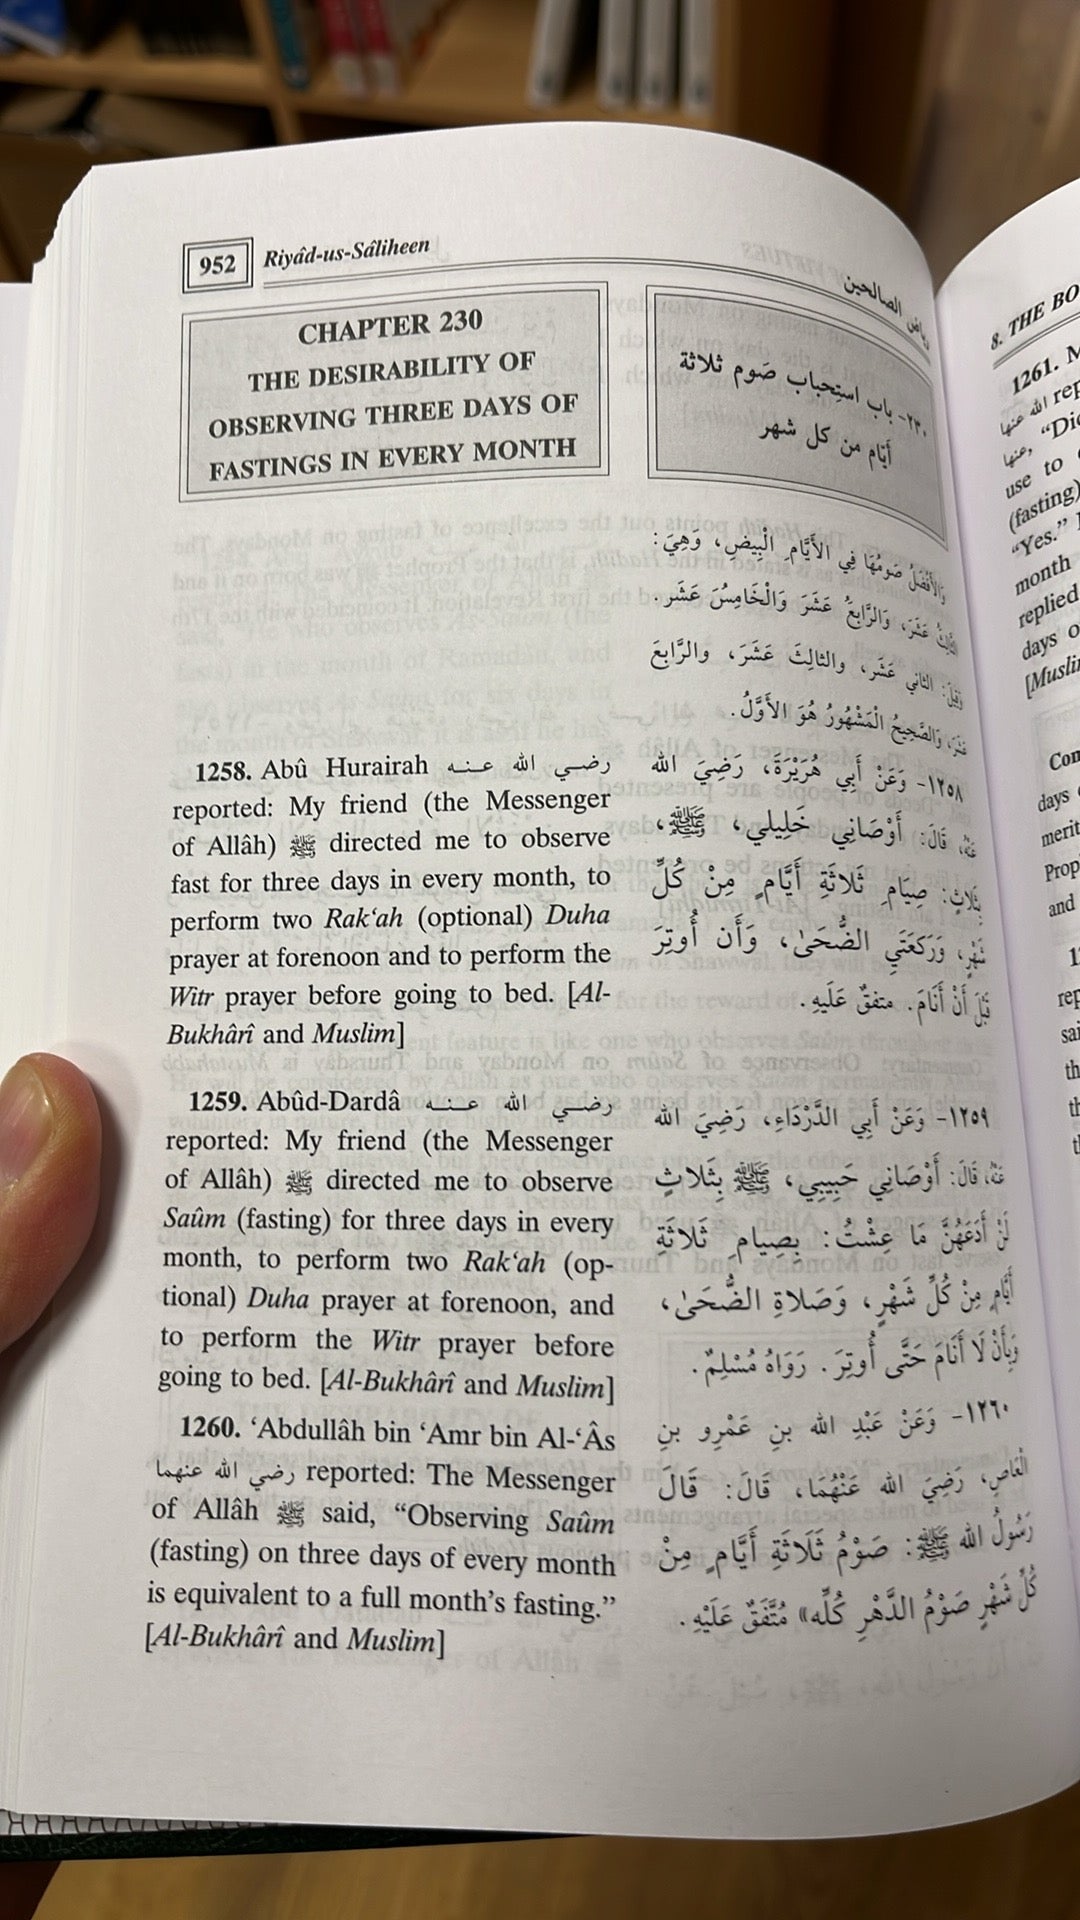 952
Riyâd-us-Sâliheen
رياض الصالحين
CHAPTER 230
THE DESIRABILITY OF
OBSERVING THREE DAYS OF
FASTINGS IN EVERY MONTH
٢٣٠- باب استِحباب صَوم ثلاثة
أيّام من كل شهر
وَالأَفْضَلُ صَومُهَا فِي الأَيَّامِ الْبِيضِ، وَهِيَ:
الثَّالِثُ عَشَرَ، وَالرَّابِعُ عَشَرَ وَالْخَامِسُ عَشَر.
وَقِيلَ: الثاني عَشَر، والثالِثَ عَشَرَ، والرَّابعَ
عَشَرَ، وَالصَّحِيحُ الْمَشْهُورُ هُوَ الأَوَّلُ.
1258. Abû Hurairah رضي الله عنه
reported: My friend (the Messenger
of Allâh) ﷺ directed me to observe
fast for three days in every month, to
perform two Rak‘ah (optional) Duha
prayer at forenoon and to perform the
Witr prayer before going to bed. [Al-
Bukhârî and Muslim]
١٢٥٨- وَعَنْ أَبِي هُرَيْرَةَ، رَضِيَ الله
عَنْهُ، قَالَ: أَوْصَانِي خَلِيلي، ﷺ،
بِثَلاثٍ: صِيَامِ ثَلاثَةِ أَيَّامٍ مِنْ كُلِّ
شَهْرٍ، وَرَكعَتَي الضُّحَىٰ، وَأَن أُوتِرَ
قَبْلَ أَنْ أَنَامَ. متفقٌ عَلَيهِ.
1259. Abûd-Dardâ رضي الله عنه
reported: My friend (the Messenger
of Allâh) ﷺ directed me to observe
Saûm (fasting) for three days in every
month, to perform two Rak‘ah (op-
tional) Duha prayer at forenoon, and
to perform the Witr prayer before
going to bed. [Al-Bukhârî and Muslim]
١٢٥٩- وَعَنْ أَبِي الدَّرْدَاءِ، رَضِيَ الله
عَنْهُ، قَالَ: أَوْصَانِي حَبِيبِي، ﷺ بِثَلاثٍ
لَنْ أَدَعَهُنَّ مَا عِشْتُ: بِصِيامِ ثَلاثَةِ
أَيَّامٍ مِنْ كُلِّ شَهْرٍ، وَصَلاةِ الضُّحَىٰ،
وَبِأَنْ لَا أَنَامَ حَتَّى أُوتِرَ. رَوَاهُ مُسْلِمٌ.
1260. ‘Abdullâh bin ‘Amr bin Al-‘Âs
رضي الله عنهما reported: The Messenger
of Allâh ﷺ said, “Observing Saûm
(fasting) on three days of every month
is equivalent to a full month’s fasting.”
[Al-Bukhârî and Muslim]
١٢٦٠- وَعَنْ عَبْدِ الله بنِ عَمْرِو بنِ
الْعَاصِ، رَضِيَ الله عَنْهُمَا، قَالَ: قَالَ
رَسُولُ الله ﷺ: صَوْمُ ثَلَاثَةِ أَيَّامٍ مِنْ
كُلِّ شَهْرٍ صَوْمُ الدَّهْرِ كُلِّه» مُتَّفَقٌ عَلَيْهِ.
8. THE BO
1261. M
الله عنها rep
عنها, “Did
use to
(fasting)
“Yes.”
month
replied
days o
[Muslim
Com
days
merit
Prop
and
rep
sai
th